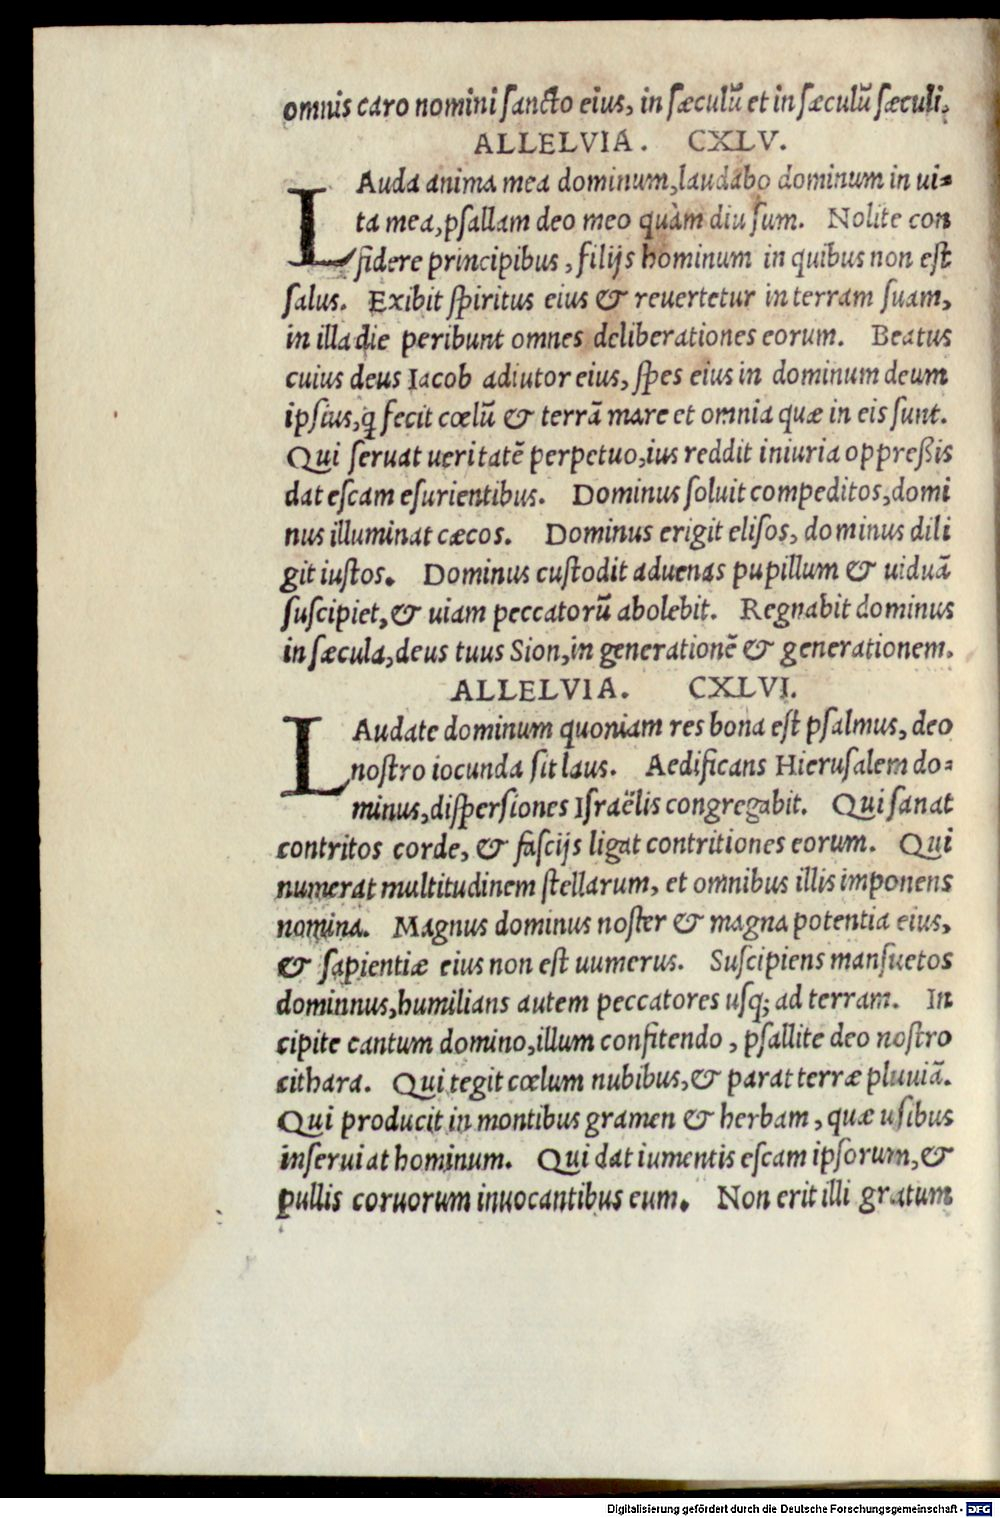 omnis caro nomini sancto eius, in sæculũ et in sæculũ sæculi.
ALLELVIA. CXLV.
LAuda anima mea dominum, laudabo dominum in ui-
ta mea, psallam deo meo quàm diu sum. Nolite con
fidere principibus, filijs hominum in quibus non est
salus. Exibit spiritus eius & reuertetur in terram suam,
in illa die peribunt omnes deliberationes eorum. Beatus
cuius deus Iacob adiutor eius, spes eius in dominum deum
ipsius, ꝗ fecit cœlũ & terrã mare et omnia quæ in eis sunt.
Qui seruat ueritatẽ perpetuo, ius reddit iniuria oppreßis
dat escam esurientibus. Dominus soluit compeditos, domi
nus illuminat cæcos. Dominus erigit elisos, dominus dili
git iustos. Dominus custodit aduenas pupillum & uiduã
suscipiet, & uiam peccatorũ abolebit. Regnabit dominus
in sæcula, deus tuus Sion, in generationẽ & generationem.
ALLELVIA. CXLVI.
LAudate dominum quoniam res bona est psalmus, deo
nostro iocunda sit laus. Aedificans Hierusalem do-
minus, dispersiones Israëlis congregabit. Qui sanat
contritos corde, & fascijs ligat contritiones eorum. Qui
numerat multitudinem stellarum, et omnibus illis imponens
nomina. Magnus dominus noster & magna potentia eius,
& sapientiæ eius non est uumerus. Suscipiens mansuetos
dominnus, humilians autem peccatores usq; ad terram. In
cipite cantum domino, illum confitendo, psallite deo nostro
cithara. Qui tegit cœlum nubibus, & parat terræ pluuiã.
Qui producit in montibus gramen & herbam, quæ usibus
inseruiat hominum. Qui dat iumentis escam ipsorum, &
pullis coruorum inuocantibus eum. Non erit illi gratum
Digitalisierung gefördert durch die Deutsche Forschungsgemeinschaft - DFG